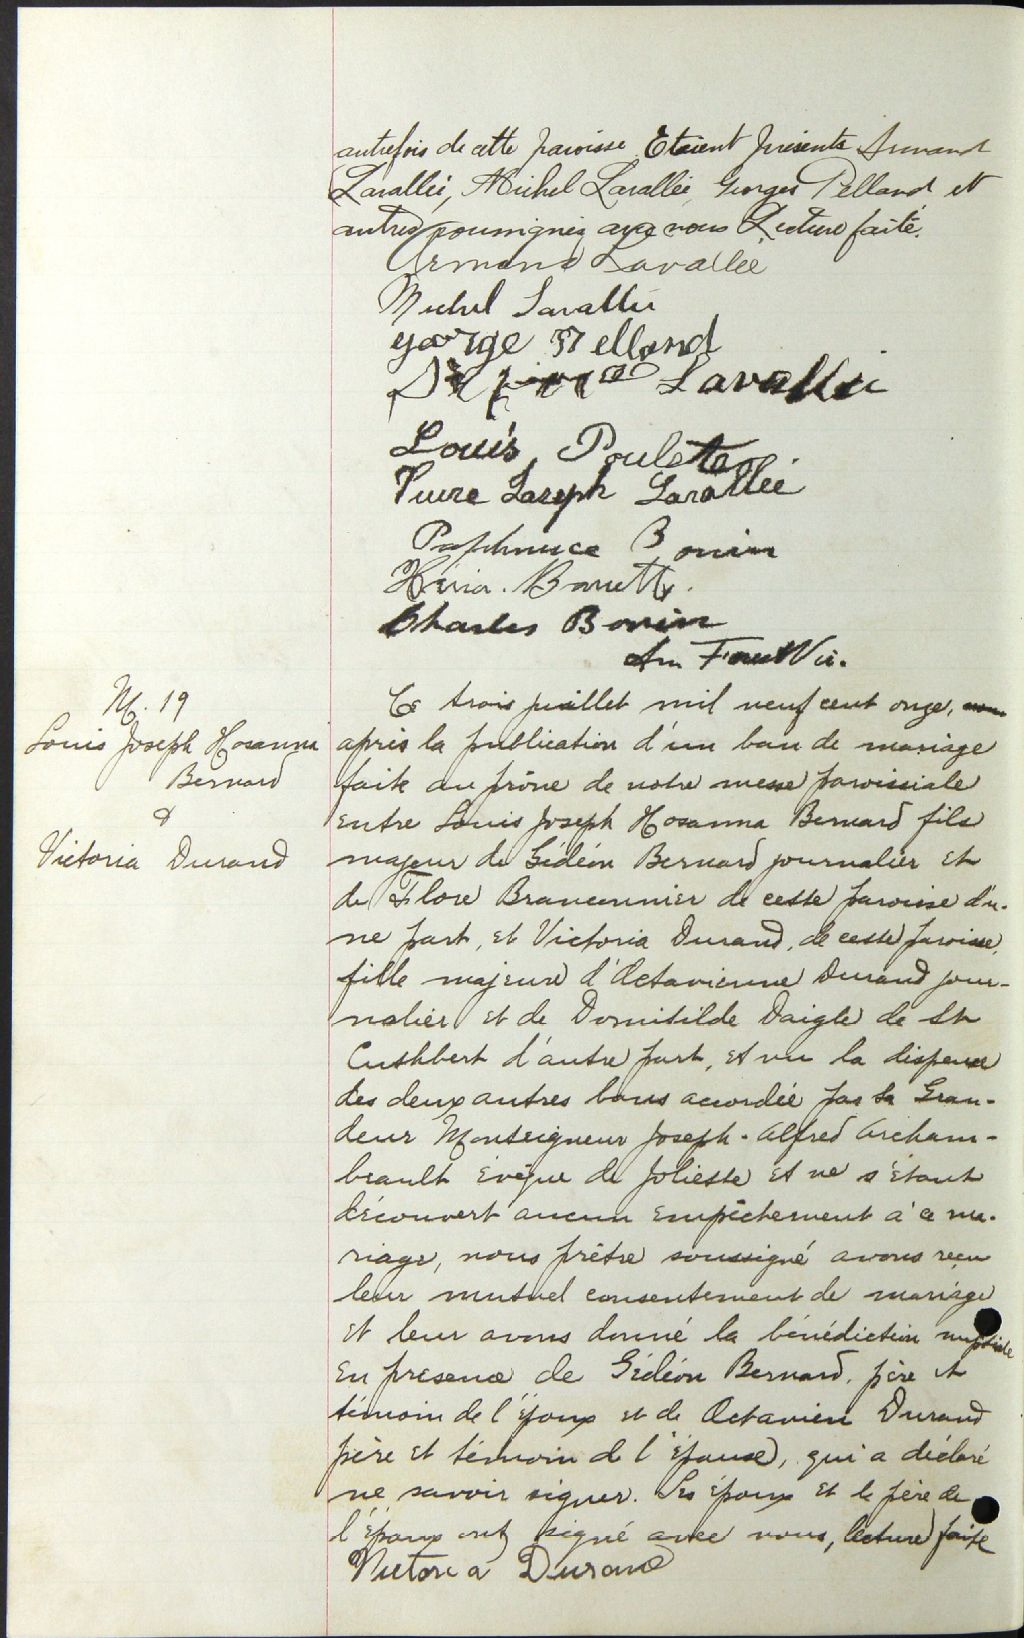 autrefois de cette paroisse. Etaient présents Armand
Lavallée, Michel Lavallée, Georges Pelland et
autres soussignés avec nous Lecture faite.
Armand Lavallée
Michel Lavallée
George Pelland
Lavallée
Louis Poulette
Pierre Joseph Lavallée
Paphnuce Bonin
Charles Bonin
M. 19
Louis Joseph Hosanna
Bernard
&
Victoria Durand
Ce trois juillet mil neuf cent onze,
après la publication d'un ban de mariage
faite au prône de notre messe paroissiale
entre Louis Joseph Hosanna Bernard fils
majeur de Gédéon Bernard journalier et
de Flore Branconnier de cette paroisse d'u-
ne part, et Victoria Durand, de cette paroisse,
fille majeure d'Octavienne Durand jour-
nalier et de Domitilde Daigle de St
Cuthbert d'autre part, et vu la dispense
des deux autres bans accordée par Sa Gran-
deur Monseigneur Joseph-Alfred Archam-
beault évêque de Joliette et ne s'étant
découvert aucun empêchement à ce ma-
riage, nous prêtre soussigné avons reçu
leur mutuel consentement de mariage
et leur avons donné la bénédiction nuptiale
en présence de Gédéon Bernard, père et
témoin de l'époux et de Octavien Durand
père et témoin de l'épouse, qui a déclaré
ne savoir signer. Les époux et le père de
l'époux ont signé avec nous, lecture faite
Victoria Durand